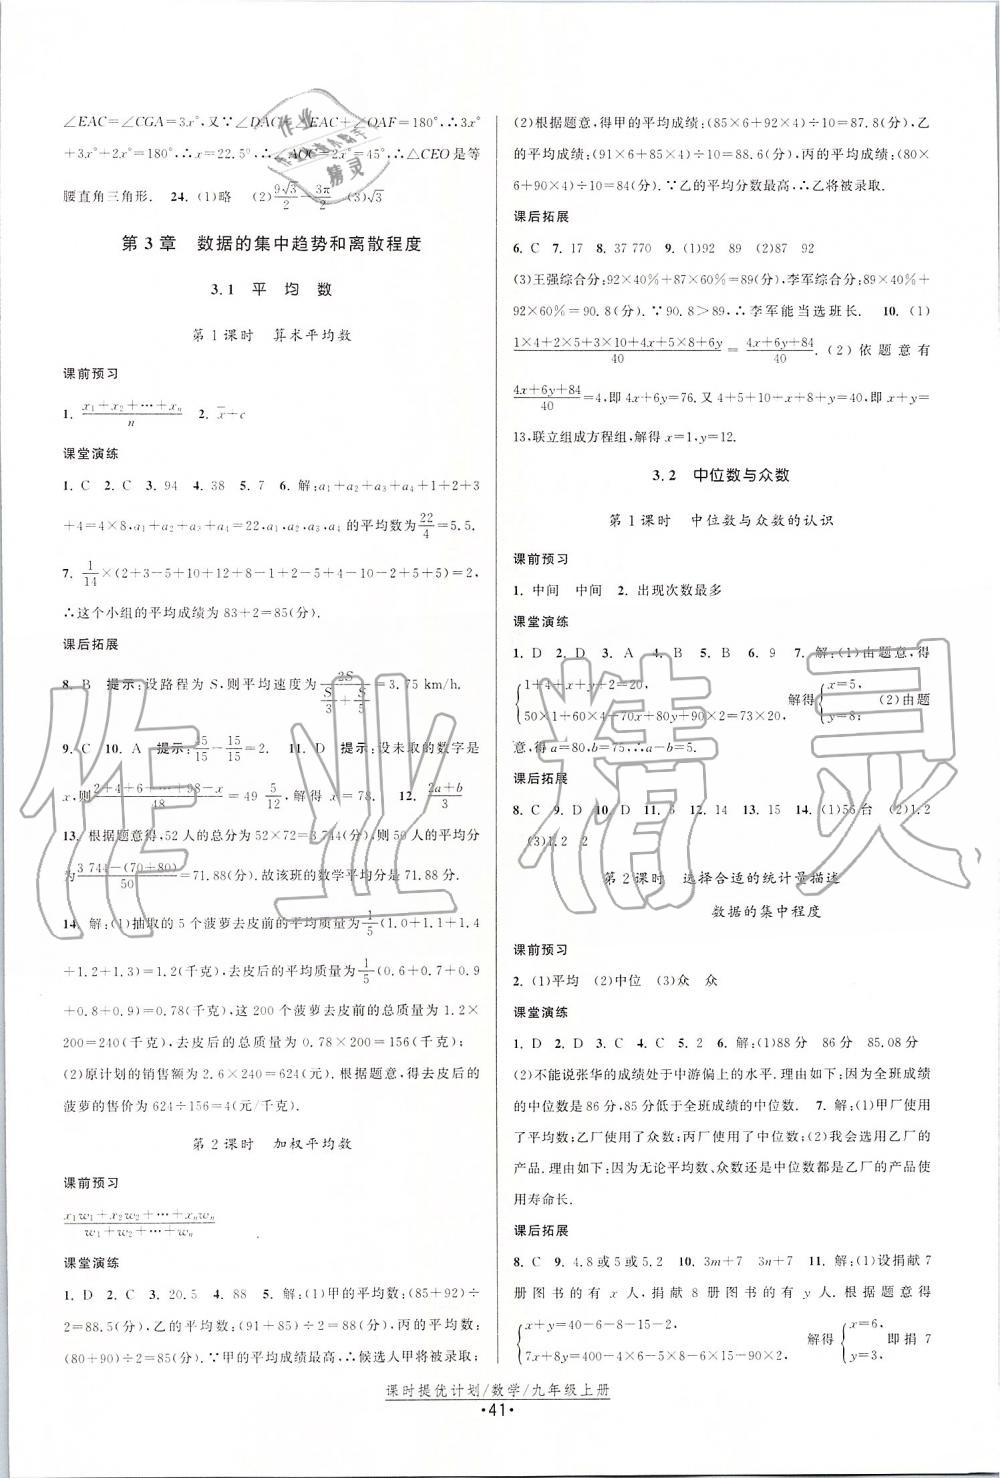 ∠EAC=∠CGA=3x°,又∵∠DAC+∠EAC+∠OAF=180°,∴3x°
+3x°+2x°=180°,∴x=22.5°,∴∠AOC=2x°=45°,∴△CEO是等
腰直角三角形. 24. (1)略 (2)9√3/2-3π/2 (3)√3
第3章 数据的集中趋势和离散程度
3.1 平均数
第1课时 算术平均数
课前预习
1. (x₁+x₂+…+xₙ)/n 2. x̄+c
课堂演练
1. C 2. C 3. 94 4. 38 5. 7 6. 解:a₁+a₂+a₃+a₄+1+2+3
+4=4×8,a₁+a₂+a₃+a₄=22,a₁,a₂,a₃,a₄的平均数为22/4=5.5.
7. 1/14×(2+3-5+10+12+8-1+2-5+4-10-2+5+5)=2,
∴这个小组的平均成绩为83+2=85(分).
课后拓展
8. B 提示:设路程为S,则平均速度为2S/(S/3+S/5)=3.75 km/h.
9. C 10. A 提示:35/15-15/15=2. 11. D 提示:设未取的数字是
x,则(2+4+6+…+98-x)/48=49 5/12,解得x=78. 12. (2a+b)/3
13. 根据题意得,52人的总分为52×72=3 744(分),则50人的平均分
为(3 744-(70+80))/50=71.88(分).故该班的数学平均分是71.88分.
14. 解:(1)抽取的5个菠萝去皮前的平均质量为1/5(1.0+1.1+1.4
+1.2+1.3)=1.2(千克),去皮后的平均质量为1/5(0.6+0.7+0.9
+0.8+0.9)=0.78(千克),这200个菠萝去皮前的总质量为1.2×
200=240(千克),去皮后的总质量为0.78×200=156(千克);
(2)原计划的销售额为2.6×240=624(元).根据题意,得去皮后的
菠萝的售价为624÷156=4(元/千克).
第2课时 加权平均数
课前预习
(x₁w₁+x₂w₂+…+xₙwₙ)/(w₁+w₂+…+wₙ)
课堂演练
1. D 2. C 3. 20.5 4. 88 5. 解:(1)甲的平均数:(85+92)÷
2=88.5(分),乙的平均数:(91+85)÷2=88(分),丙的平均数:
(80+90)÷2=85(分).∵甲的平均成绩最高,∴候选人甲将被录取;
(2)根据题意,得甲的平均成绩:(85×6+92×4)÷10=87.8(分),乙
的平均成绩:(91×6+85×4)÷10=88.6(分),丙的平均成绩:(80×
6+90×4)÷10=84(分).∵乙的平均分数最高,∴乙将被录取.
课后拓展
6. C 7. 17 8. 37 770 9. (1)92 89 (2)87 92
(3)王强综合分:92×40%+87×60%=89(分),李军综合分:89×40%+
92×60%=90.8(分).∵90.8>89,∴李军能当选班长. 10. (1)
(1×4+2×5+3×10+4x+5×8+6y)/40=(4x+6y+84)/40.(2)依题意有
(4x+6y+84)/40=4,即4x+6y=76.又4+5+10+x+8+y=40,即x+y=
13,联立组成方程组,解得x=1,y=12.
3.2 中位数与众数
第1课时 中位数与众数的认识
课前预习
1. 中间 中间 2. 出现次数最多
课堂演练
1. D 2. D 3. A 4. B 5. B 6. 9 7. 解:(1)由题意,得
{1+4+x+y+2=20, 50×1+60×4+70x+80y+90×2=73×20, 解得{x=5, y=8; (2)由题
意,得a=80,b=75,∴a-b=5.
课后拓展
8. C 9. D 10. D 11. 6 12. 14 13. 15 14. (1)56台 (2)1.2
(3)1.2 2
第2课时 选择合适的统计量描述
数据的集中程度
课前预习
2. (1)平均 (2)中位 (3)众 众
课堂演练
1. D 2. D 3. C 4. C 5. 2 6. 解:(1)88分 86分 85.08分
(2)不能说张华的成绩处于中游偏上的水平.理由如下:全班成绩
的中位数是86分,85分低于全班成绩的中位数. 7. 解:(1)甲厂使用
了平均数;乙厂使用了众数;丙厂使用了中位数;(2)我会选用乙厂的
产品.理由如下:因为无论平均数、众数还是中位数都是乙厂的产品使
用寿命长.
课后拓展
8. C 9. 4.8或5或5.2 10. 3m+7 3n+7 11. 解:(1)设捐献7
册图书的有x人,捐献8册图书的有y人.根据题意得
{x+y=40-6-8-15-2, 7x+8y=400-4×6-5×8-6×15-2×50, 解得{x=6, y=3. 即捐7
课时提优计划/数学/九年级上册
·41·
作业精灵